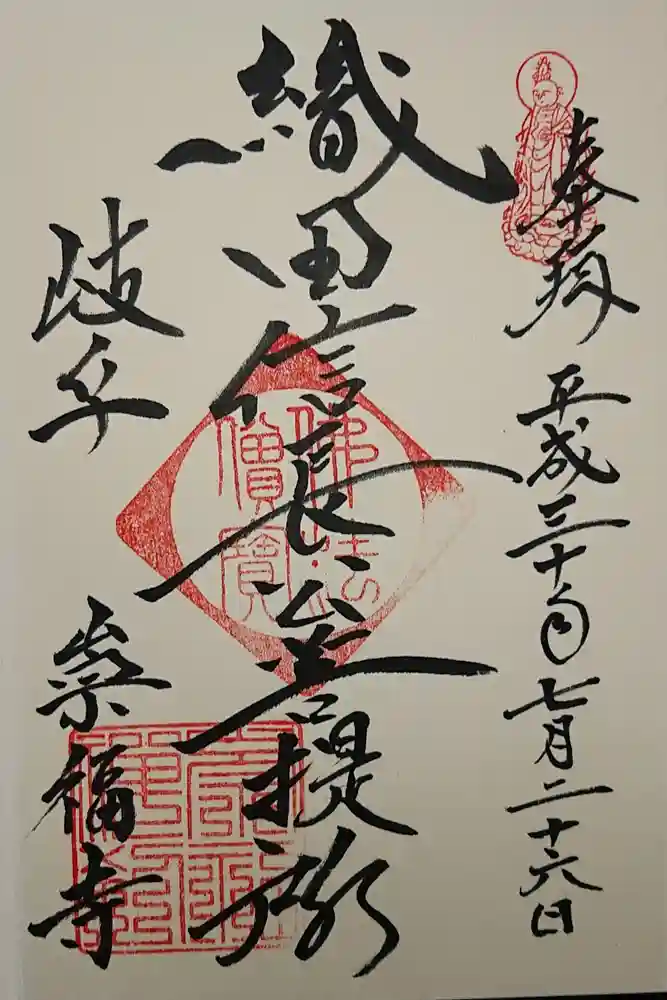 奉拝 平成三十年七月二十六日
織田信長公菩提所
佛法
僧寶
岐阜 崇福寺